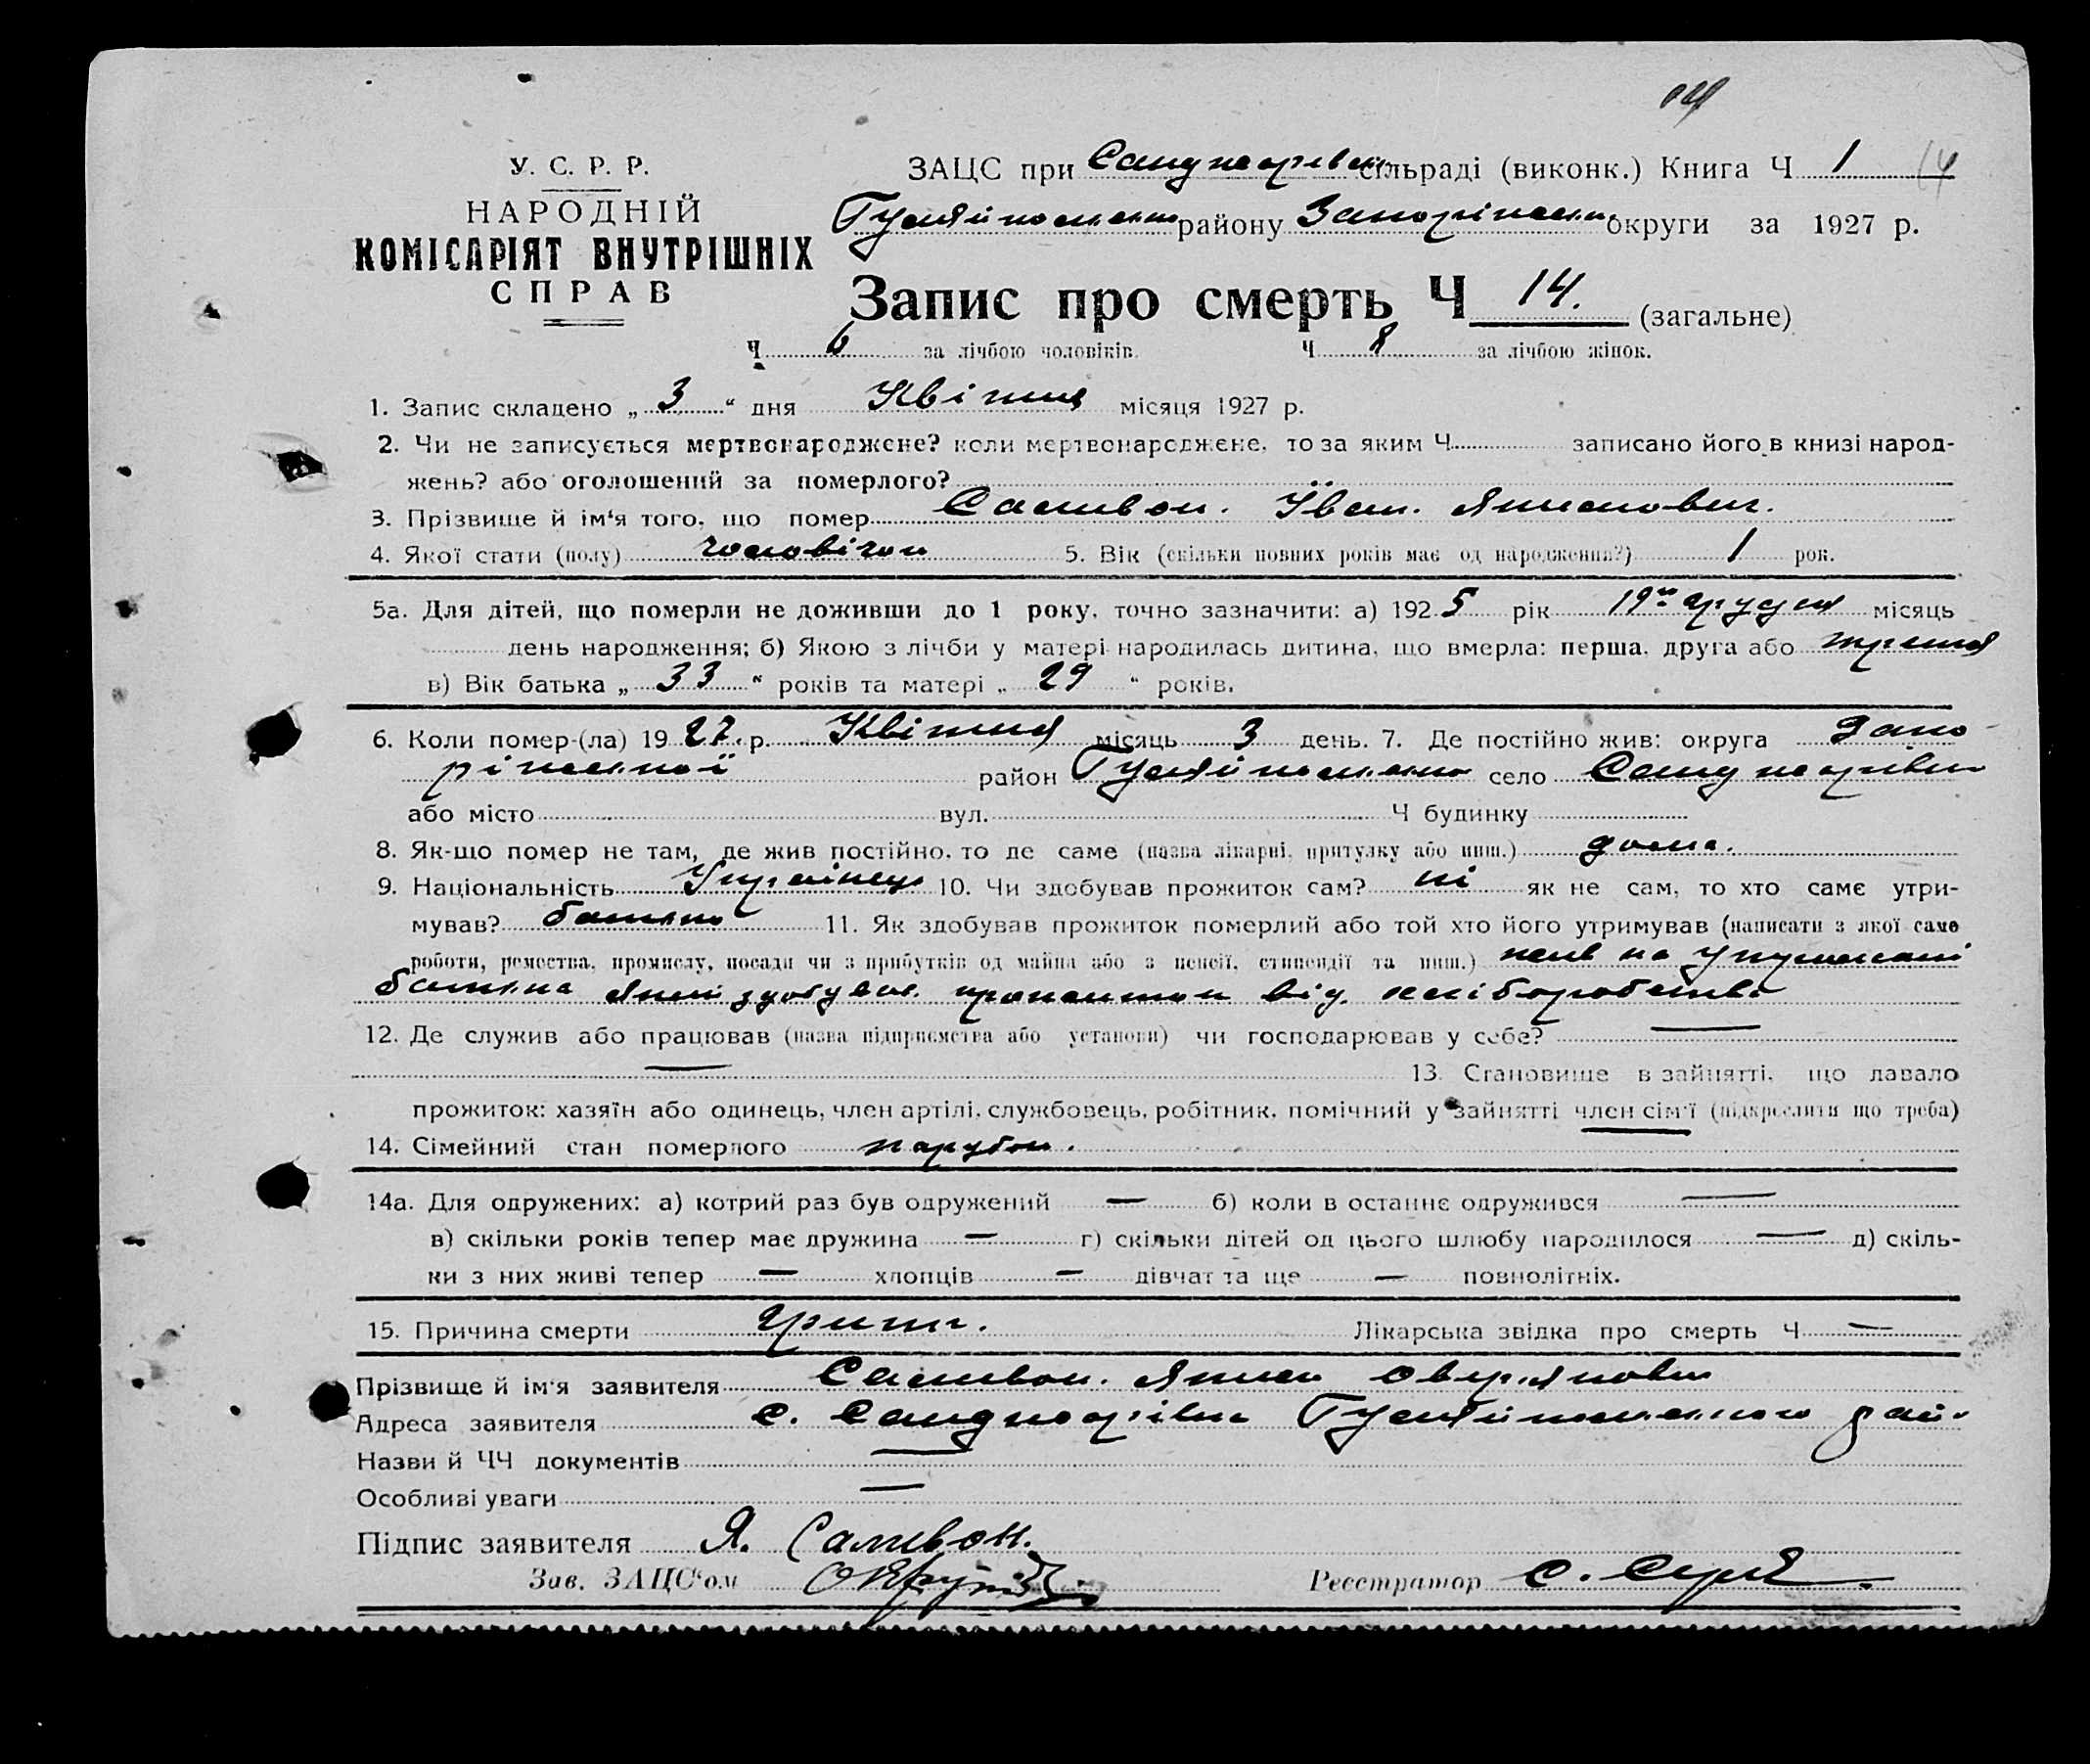 14
У. С. Р. Р.
НАРОДНІЙ
КОМІСАРІЯТ ВНУТРІШНІХ
СПРАВ
ЗАЦС при сільраді (виконк.) Книга Ч 1 14
району округи за 1927 р.
Запис про смерть Ч 14. (загальне)
Ч 6 за лічбою чоловіків. Ч 8 за лічбою жінок.
1. Запис складено „ 3 “ дня Квітня місяця 1927 р.
2. Чи не записується мертвонароджене? коли мертвонароджене, то за яким Ч записано його в книзі народ-
жень? або оголошений за померлого?
3. Прізвище й ім‘я того, що помер Саливон. Іван.
4. Якої стати (полу) 5. Вік (скільки повних років має од народження?) 1 рок.
5а. Для дітей, що померли не доживши до 1 року, точно зазначити: а) 1925 рік 19го грудня місяць
день народження; б) Якою з лічби у матері народилась дитина, що вмерла: перша, друга або третя
в) Вік батька „ 33 “ років та матері „ 29 “ років.
6. Коли помер-(ла) 1927. р. Квітня місяць 3 день. 7. Де постійно жив: округа Запо-
ріжської район село
або місто вул. Ч будинку
8. Як-що помер не там, де жив постійно, то де саме (назва лікарні, притулку або инш.) дома.
9. Національність Українець 10. Чи здобував прожиток сам? ні як не сам, то хто саме утри-
мував? батько 11. Як здобував прожиток померлий або той хто його утримував (написати з якої саме
роботи, ремества, промислу, посади чи з прибутків од майна або з пенсії, стипендії та инш.) жив на
батька який здобував прожиток від хліборобства
12. Де служив або працював (назва підприємства або установи) чи господарював у себе? —
— 13. Становище в зайнятті, що давало
прожиток: хазяїн або одинець, член артілі, службовець, робітник, помічний у зайнятті член сім‘ї (підкреслити що треба)
14. Сімейний стан померлого парубок.
14а. Для одружених: а) котрий раз був одружений — б) коли в останнє одружився —
в) скільки років тепер має дружина — г) скільки дітей од цього шлюбу народилося — д) скіль-
ки з них живі тепер — хлопців — дівчат та ще — повнолітніх.
15. Причина смерти грипп. Лікарська звідка про смерть Ч —
Прізвище й ім‘я заявителя Саливон.
Адреса заявителя с.
Назви й ЧЧ документів —
Особливі уваги —
Підпис заявителя Я. Саливон.
Зав. ЗАЦС‘ом Реєстратор С.